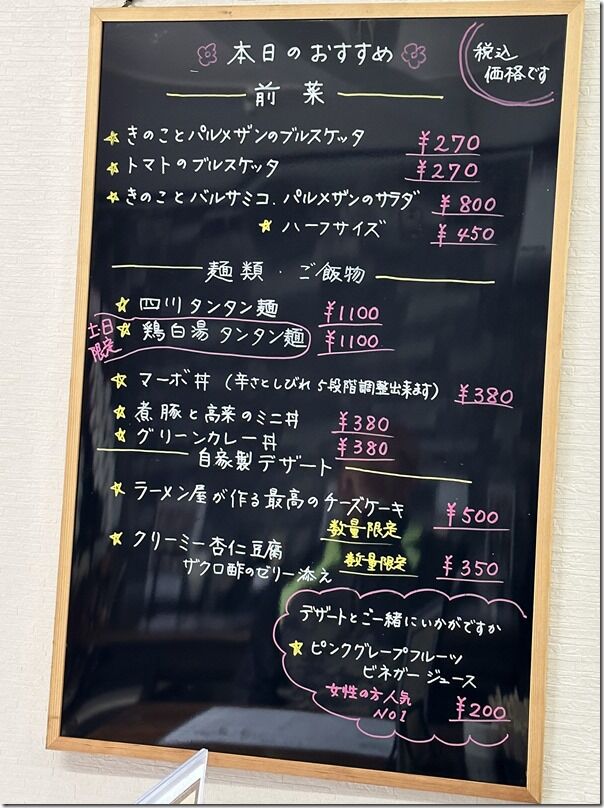 本日のおすすめ
税込
価格です
前菜
きのことパルメザンのブルスケッタ ¥270
トマトのブルスケッタ ¥270
きのことバルサミコ、パルメザンのサラダ ¥800
ハーフサイズ ¥450
麺類・ご飯物
四川タンタン麺 ¥1100
土日
限定
鶏白湯タンタン麺 ¥1100
マーボ丼(辛さとしびれ5段階調整出来ます) ¥380
煮豚と高菜のミニ丼 ¥380
グリーンカレー丼 ¥380
自家製デザート
ラーメン屋が作る最高のチーズケーキ ¥500
数量限定
クリーミー杏仁豆腐
ザクロ酢のゼリー添え 数量限定 ¥350
デザートとご一緒にいかがですか
ピンクグレープフルーツ
ビネガージュース
女性の方人気
NO1 ¥200